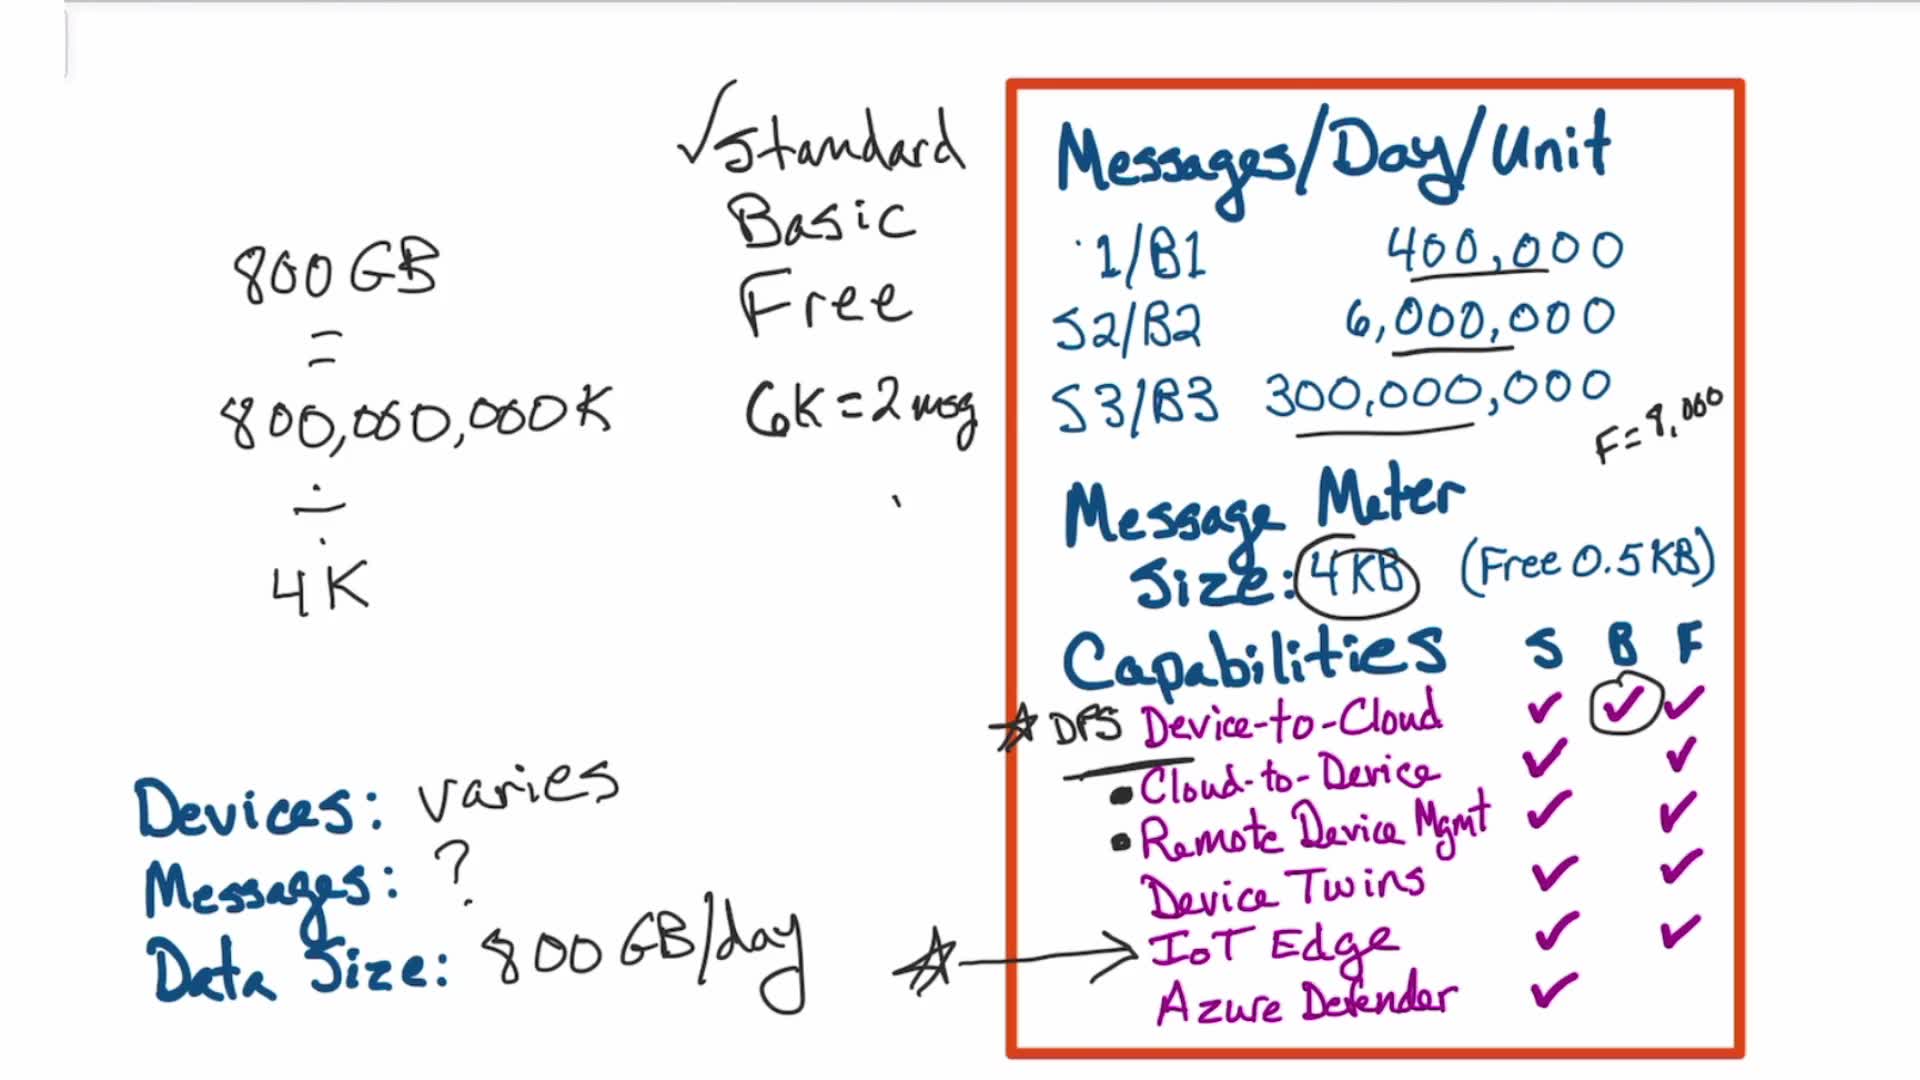 800 GB
=
800,000,000K
÷
4K
Devices: varies
Messages: ?
Data Size: 800 GB/day
√Standard
Basic
Free
6K = 2 msg
Messages/Day/Unit
1/B1 400,000
S2/B2 6,000,000
S3/B3 300,000,000
F = 8,000
Message Meter
Size: 4KB (Free 0.5KB)
Capabilities S B F
DPS Device-to-Cloud ✓ ✓ ✓
• Cloud-to-Device ✓ ✓
• Remote Device Mgmt ✓ ✓
Device Twins ✓ ✓
IoT Edge ✓ ✓
Azure Defender ✓